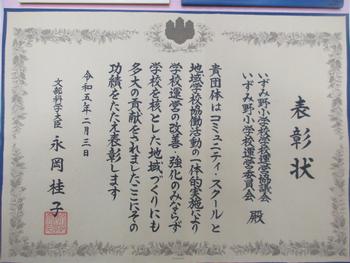 表彰状
いずみ野小学校学校運営協議会
いずみ野小学校運営委員会
殿
貴団体はコミュニティ・スクールと
地域学校協働活動の一体的実施により
学校運営の改善・強化のみならず
学校を核とした地域づくりにも
多大の貢献をされましたここにその
功績をたたえ表彰します
令和五年二月三日
文部科学大臣 永岡桂子